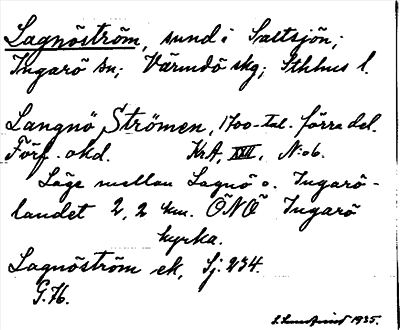 Lagnöström, sund i Saltsjön;
Ingarö sn; Värmdö skg; Sthlms l.
Langnö Strömen, 1700-tal. förra del.
Förf. okd. KrA, XXII, N:o 6.
Läge mellan Lagnö o. Ingarö-
landet 2,2 km. ÖNÖ Ingarö
kyrka.
Lagnöström ek, Sj. 234.
G. 76.
S. Lundqvist 1935.